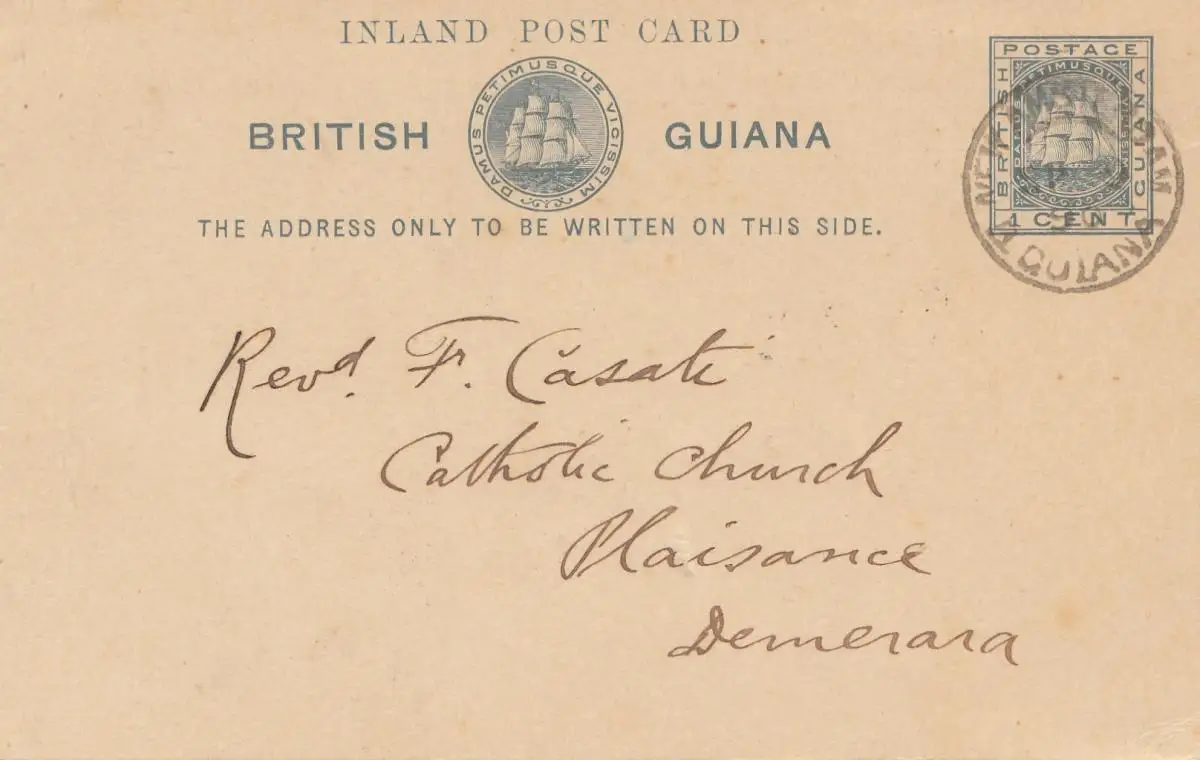 INLAND POST CARD
BRITISH GUIANA
DAMUS PETIMUSQUE VICISSIM
THE ADDRESS ONLY TO BE WRITTEN ON THIS SIDE.
POSTAGE
BRITISH
GUIANA
DAMUS PETIMUSQUE VICISSIM
1 CENT
GUIANA
Revd. F. Casati
Catholic Church
Plaisance
Demerara